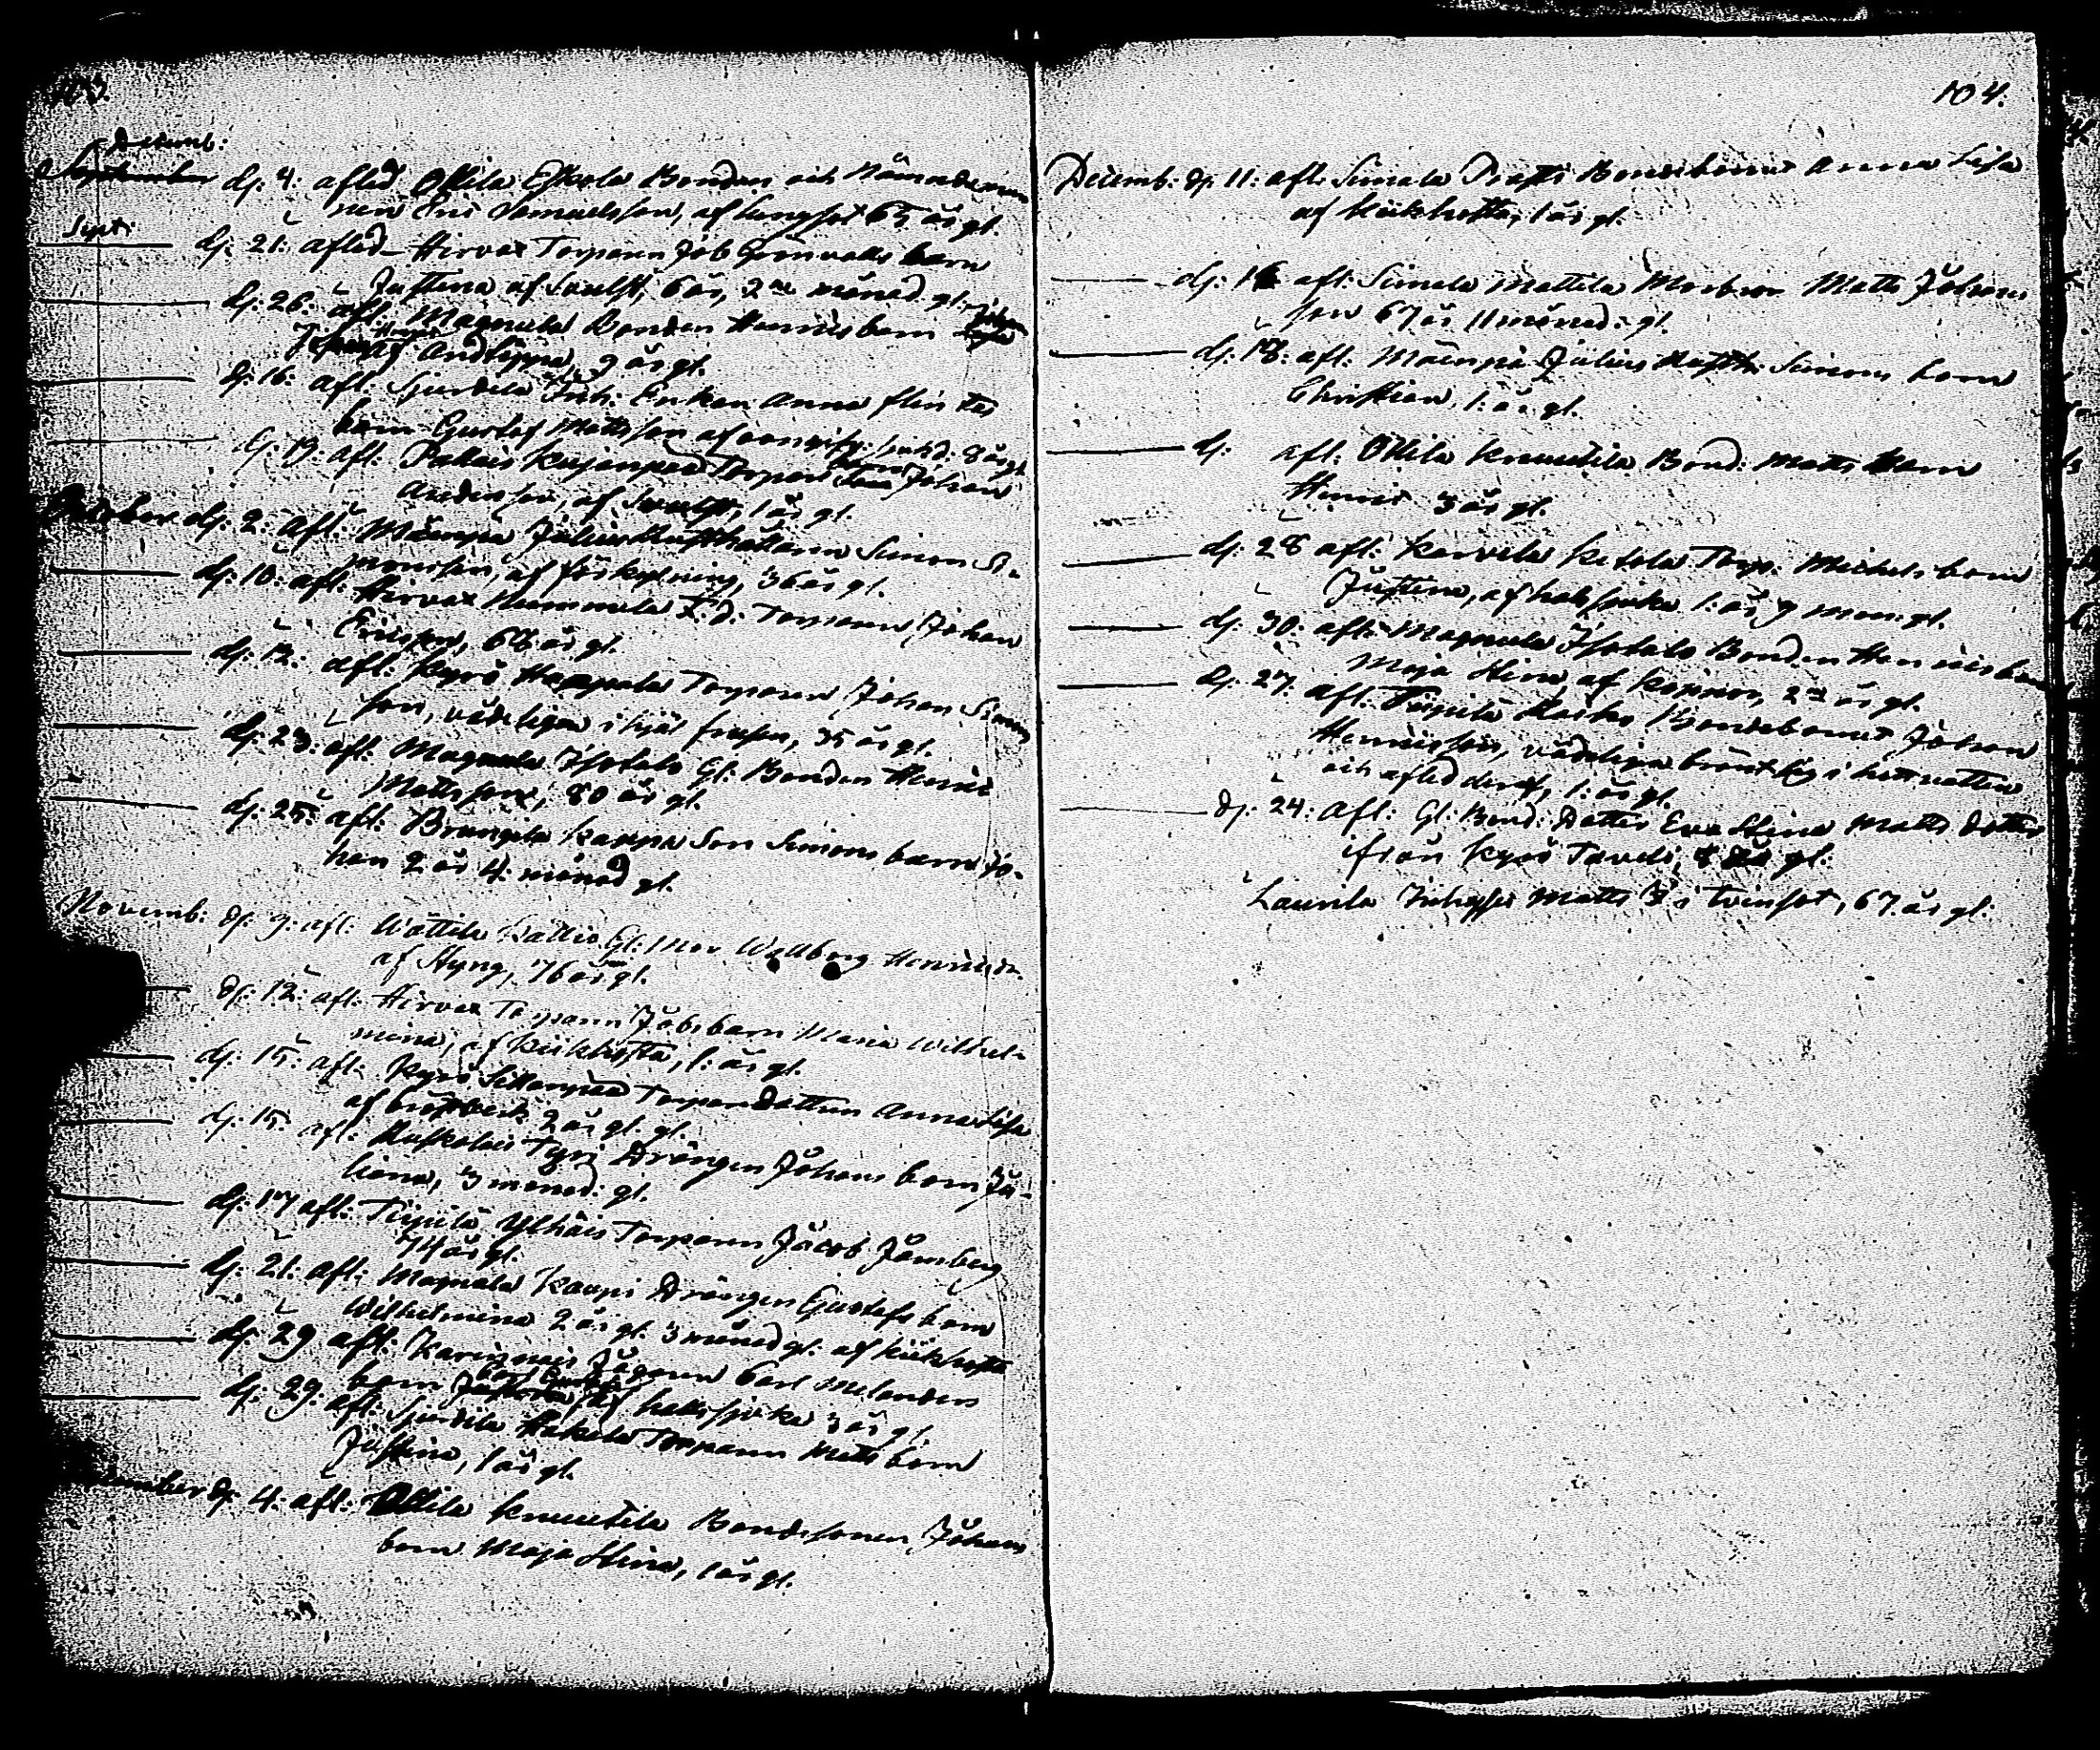 Decemb:
September dj: 4: afled Ottila Eskola Bonden och Nämndeman
nen Eric Samuelsson, af lungsot 65 år gl.
Sept: dj: 21: afled Hirvax Torparen Job Grönvalls barn
Justina af 6 år, 2 månad gl.
dj: 26: afl: Magnula Bonden Henrics barn
af Andtäppa, 9 år gl.
dj: 16: afl: Sjurdila Inh: Enkan Anna
barn Gustaf Mattsson af 8 år gl.
dj: 19: afl: Pallais Kujanpää Torpar Johan
af 1 år gl.
October dj: 2: Afl: Mäenpä Julius Rusthållaren Simon Si-
monsson, af förkylning, 36 år gl.
dj: 10: afl: Hirvax Nummela F. d. Torparen Johan
Ericsson, 68 år gl.
dj: 12: afl: Kyrö Happala Torparen Johan Simons
son, vådeligen ihjäl frusen, 35 år gl.
dj: 23: afl: Magnula Isotalo Gl: Bonden Henric
Mattsson, 80 år gl.
dj: 25: afl: Kauppa Son Simons barn Jo-
han 2 år 4: månad gl.
Novemb: dj: 9: afl: Wättilä Kallio Gl: Mor Wallborg Henricsdr.
af Styng, 76 år gl.
dj: 12: afl: Hirvax Torparen Jobs barn Maria Wilhel-
mina, af Kikhosta, 1: år gl.
dj: 15: afl: Kyrö Sillanpää Torparedottren Anna Lisa
af 2 år gl. gl.
dj: 15: afl: Ruskolais Tyri Drängen Johans barn Ju-
liana, 3 månad: gl.
dj: 17 afl: Piipilä Ylhäis Torparen Jacob Jernberg
74 år gl.
dj: 21: afl: Magnula Kaupi Drängen Gustafs barn
Wilhelmina 2 år gl. 3 månad gl: af kikhosta
dj: 29 afl: Karinais Jägaren Carl Melanders
barn af halssjuka 3 år gl.
dj: 29: afl: Sjurdila Hakula Torparen Matts barn
Justina, 1 år gl.
December dj: 4: afl: Ottila Knuutila Bondesonen Johans
barn Maja Stina, 1 år gl.
104.
Decemb: dj: 11: afl: Simala Prafti Bondebarnet Anna Lisa
af Kikhosta, 1 år gl.
dj: 16 afl: Simala Mattila Matts Johans
son 67 år 11 månad: gl.
dj: 18: afl: Mäenpä Julius Rusth: Simons barn
Christian, 1: år gl.
dj: afl: Ottila Knuutila Bond: Matts barn
Henric 3 år gl.
dj: 28 afl: Karvela Ketola Torp: Michels barn
Justina, af halssjuka 1: år 9 mon: gl.
dj: 30: afl: Magnula Isotalo Bonden Henrics barn
Maja Stina af Koppor, 2 år gl.
dj: 27: afl: Piipilä Kaisko Bondebarnet Johan
Henricsson, vådeligen bränt sig i hett vatten
och afled deraf, 1: år gl.
dj: 24: Afl: Gl: Bond: Dotter Eva Stina Matts dotter
ifrån Kyrö Taveli, gl:
Laurila Inhyses Matts i tvinsot, 67 år gl: